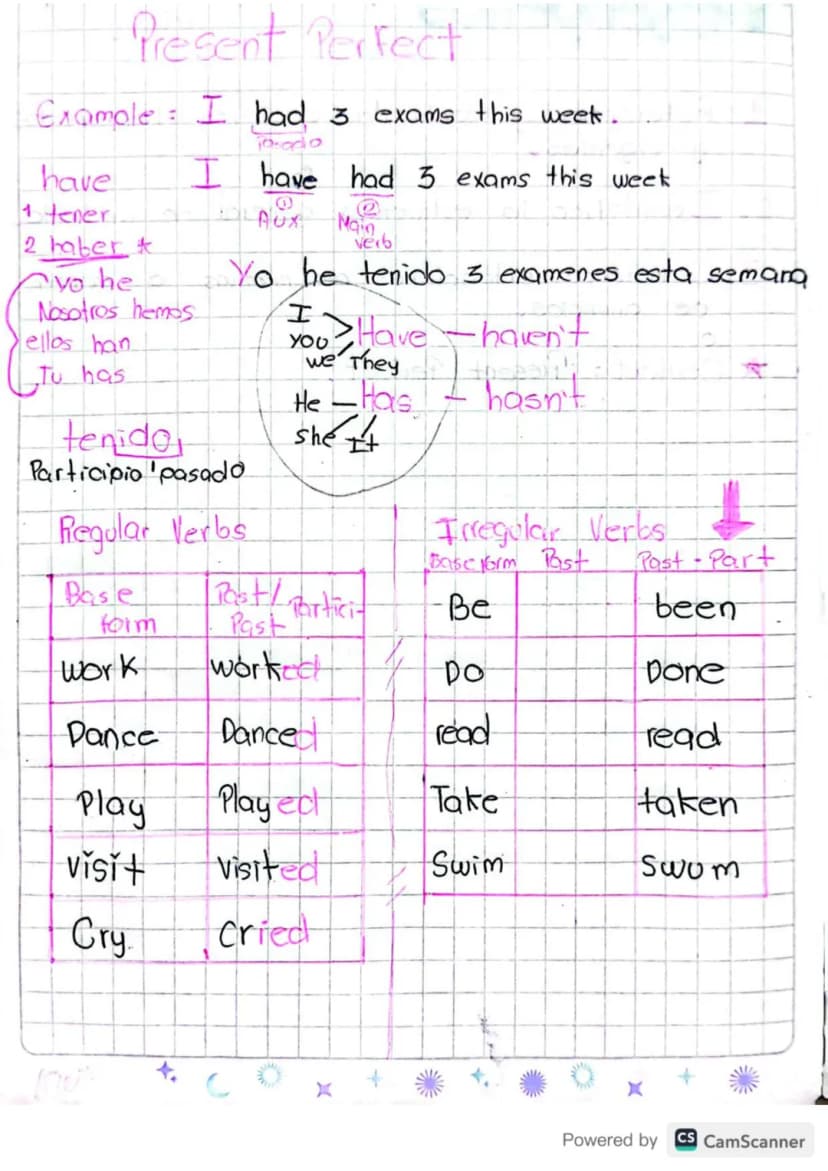 Present Perfect
Example: I had 3 exams this week.
pasado
have I have had 3 exams this week
1 tener ① AUX ② Main verb
2 haber *
yo he Yo he tenido 3 examenes esta semana
Nosotros hemos
ellos han
Tu has
I
you
we They
Have - haven't
He - Has - hasn't
she It
tenido
Participio pasado
Regular Verbs
Base form Past/ Past Partici-
work worked
Dance Danced
Play Played
visit visited
Cry cried
Irregular Verbs
Base form Past Past-Part
Be been
DO Done
read read
Take taken
Swim swum
Powered by CS CamScanner